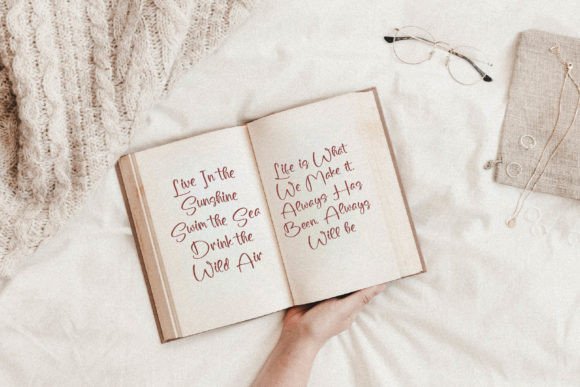 Live In the
Sunshine
Swim the Sea
Drink the
Wild Air
Life is What
We Make it
Always Has
Been Always
Will be